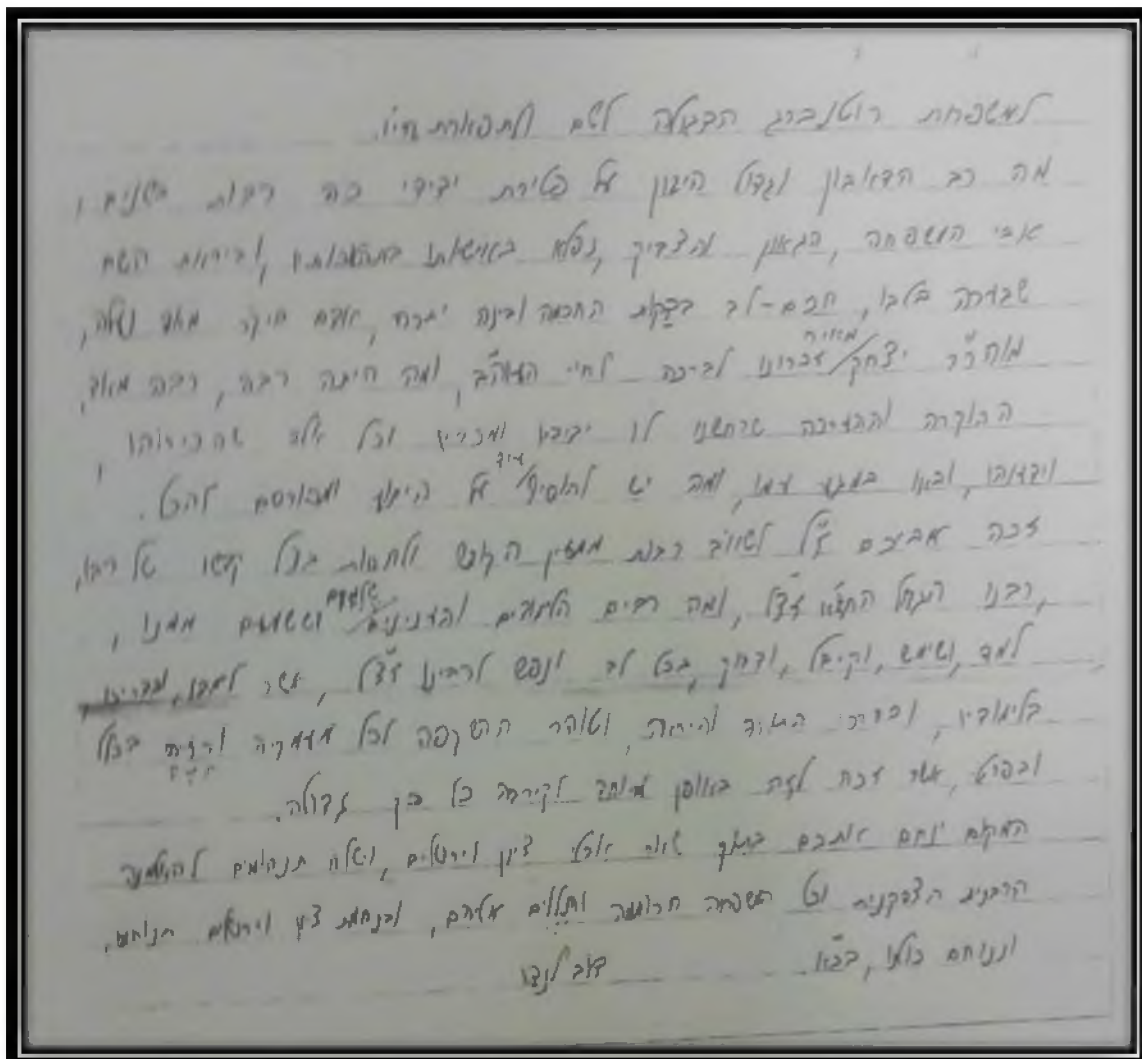 למשפחת רוטנברג הדגולה לשם ולתפארת
מה רב הדאבון וגדול היגון על פטירת ידידי כה רבות בשנים,
אבי המשפחה, הגאון והצדיק, נפלא באישיותו וביראת השם
שבערה בלבו, חכם-לב בדקות החכמה ובינה יתרה, אדם חיקר מאד נעלה,
מוהר"ר יצחק מאיר זכרונו לברכה לחיי העוה"ב, ומה היתה רבה, רבה מאד,
ההוקרה וההערכה שרחשנו לו ידידיו ומכריו וכל אלה שהכירוהו,
וידעוהו, ובאו במגע עמו, ומה יש להוסיף עוד על הידוע ומפורסם לכל.
זכה אביכם ז"ל לשאוב רבות ממעין הקודש ולחסות בצל קדשו של רבו,
רבנו הגדול החזו"א זצ"ל, ומה רבים הלימודים והענינים ששמעם ממנו,
למד, ושימש, וקיבל, ודבק, בכל לב ונפש לרבינו זצ"ל, אשר
בלימודיו, ובדרכי המוסר והיראה, וטוהר ההשקפה לכל מעמקיה בכלל
ובפרט, אשר זכה לזה באופן מיוחד לקירבה כל כך גדולה.
המקום ינחם אתכם בתוך שאר אבלי ציון וירושלים, וישלח תנחומים להאלמנה
הרבנית הצדקנית וכל המשפחה הרוממה אליהם, ובנחמת ציון וירושלים תנוחמו,
וננוחם כולנו, בב"א דוב לנדו